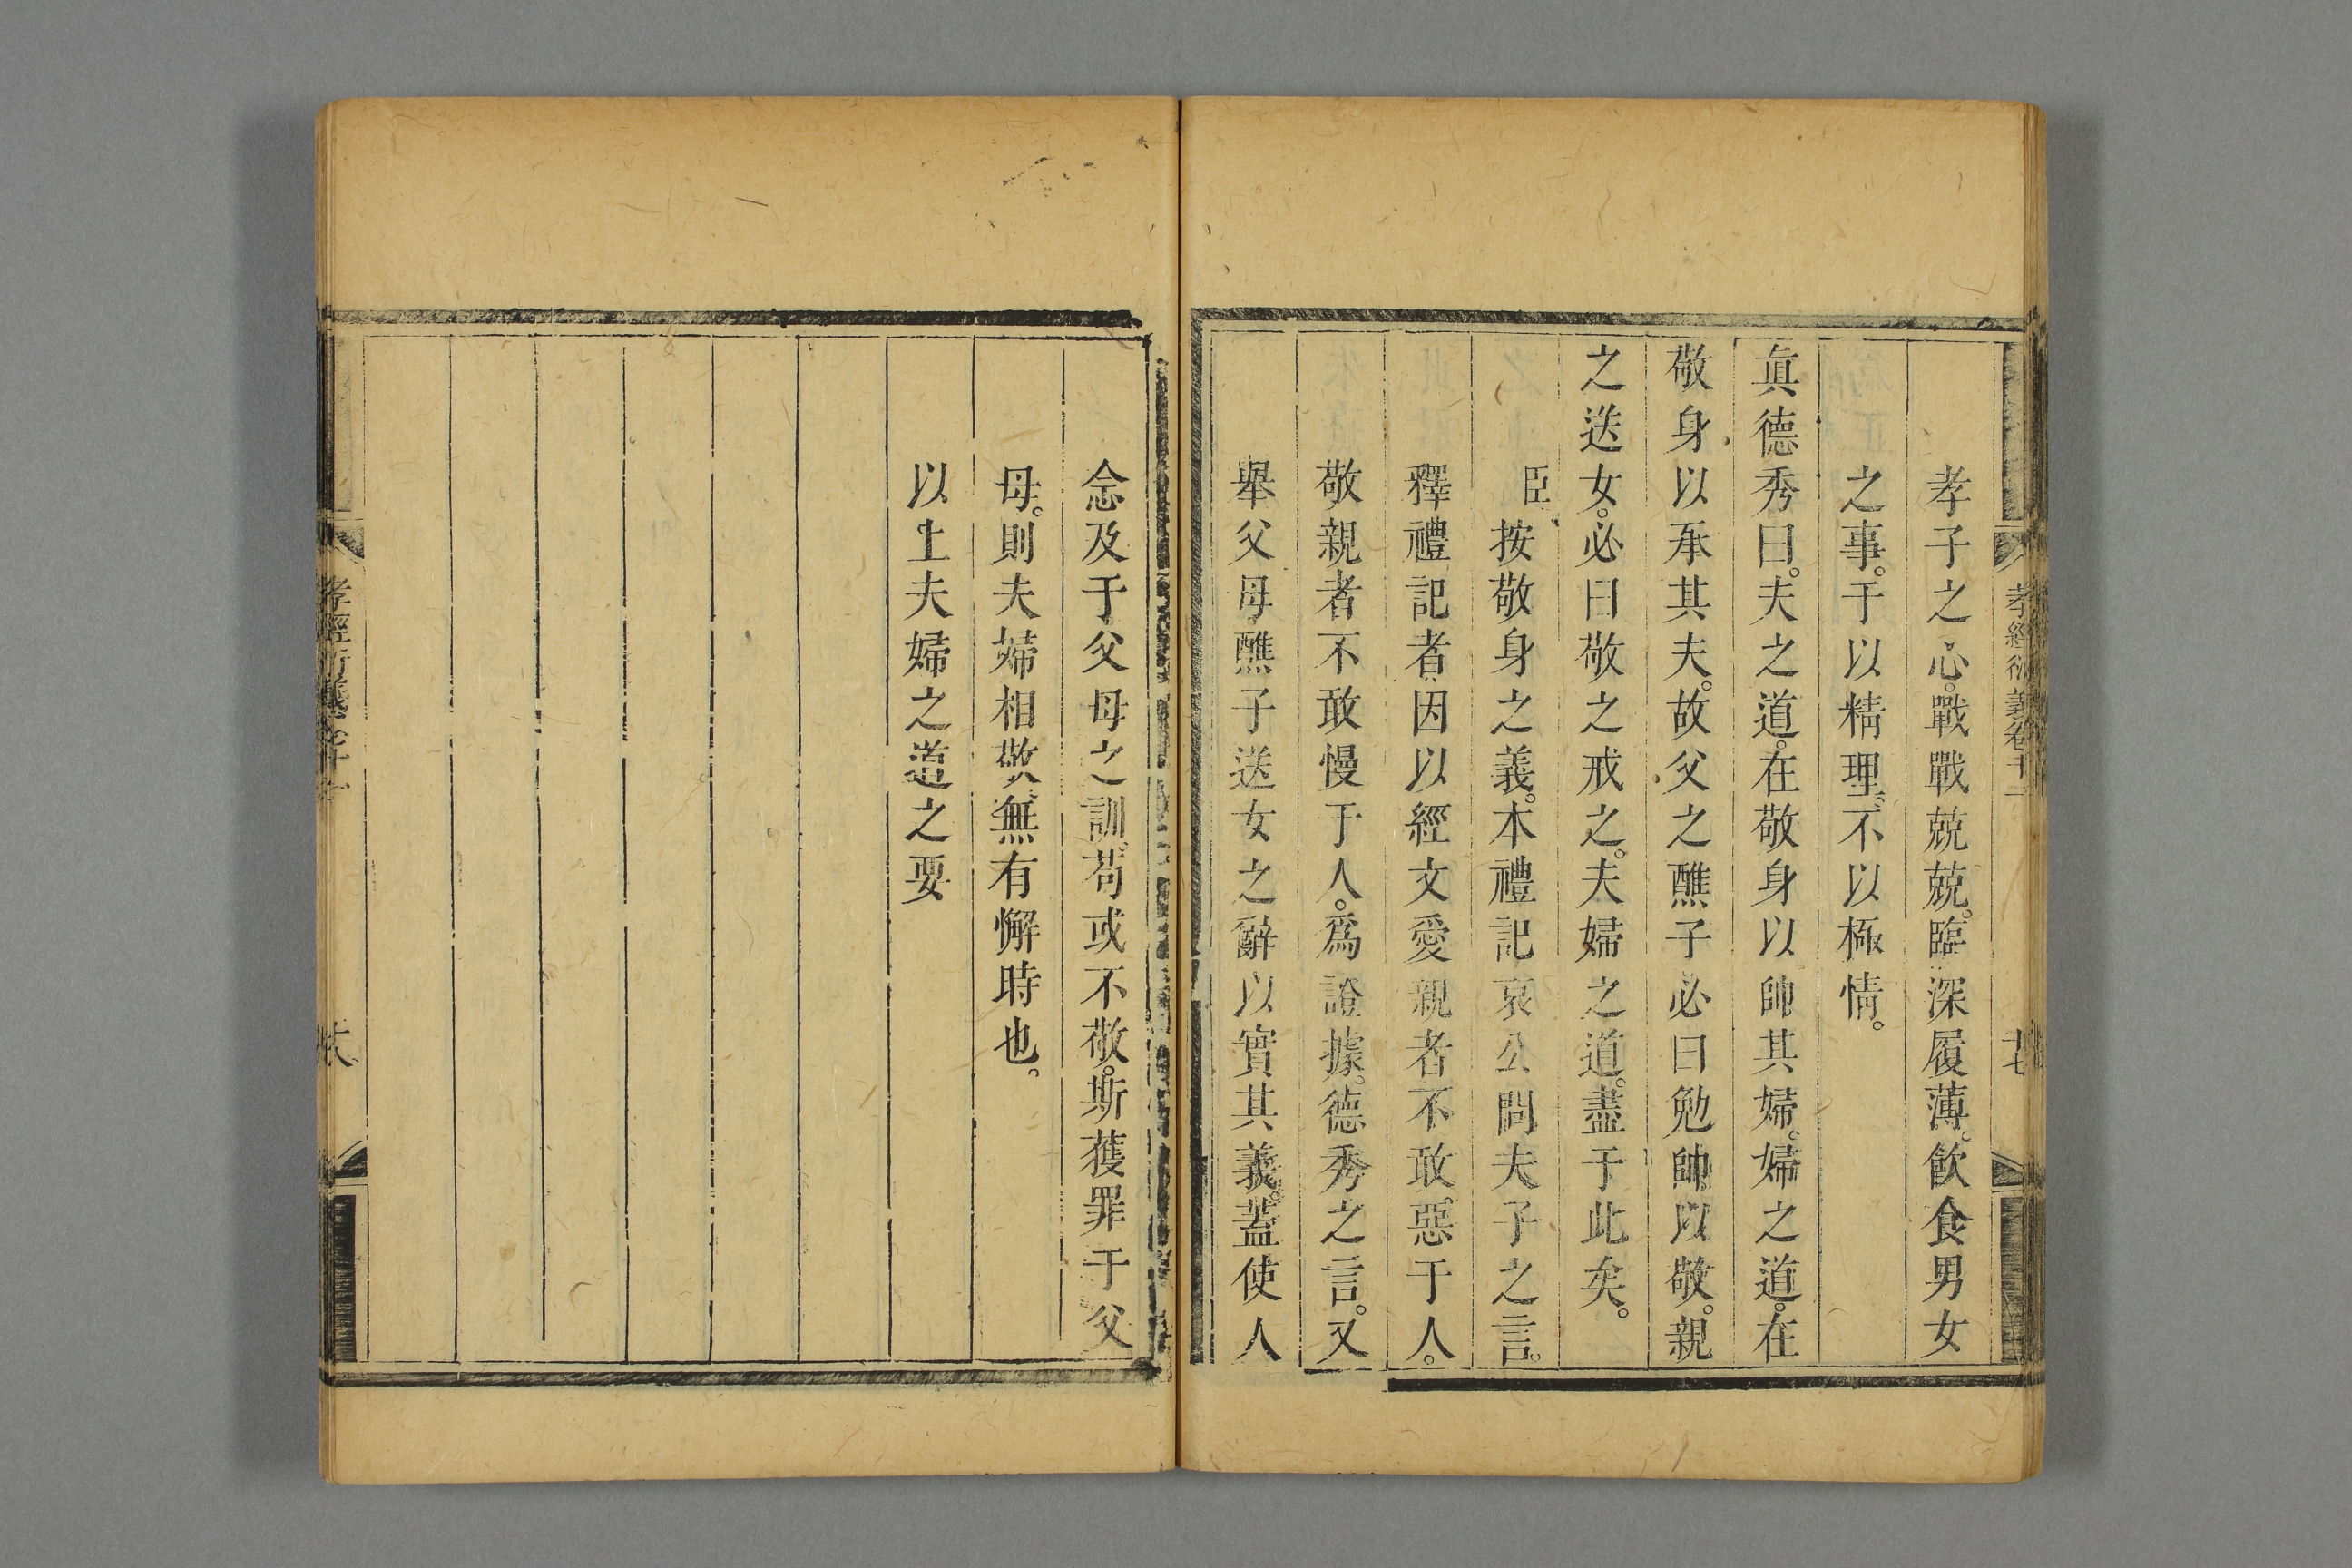 孝經衍義卷十二
十七
孝子之心。戰戰兢兢。臨深履薄。飮食男女
之事。于以精理。不以極情。
眞德秀曰。夫之道。在敬身以帥其婦。婦之道。在
敬身以承其夫。故父之醮子必曰勉帥以敬。親
之送女。必曰敬之戒之。夫婦之道。盡于此矣。
臣按敬身之義。本禮記哀公問夫子之言。
釋禮記者。因以經文愛親者不敢惡于人。
敬親者不敢慢于人。爲證據。德秀之言。又
舉父母醮子送女之辭以實其義。蓋使人
念及于父母之訓。苟或不敬。斯獲罪于父
母。則夫婦相敬無有懈時也。
以上夫婦之道之要
孝經衍義卷十二